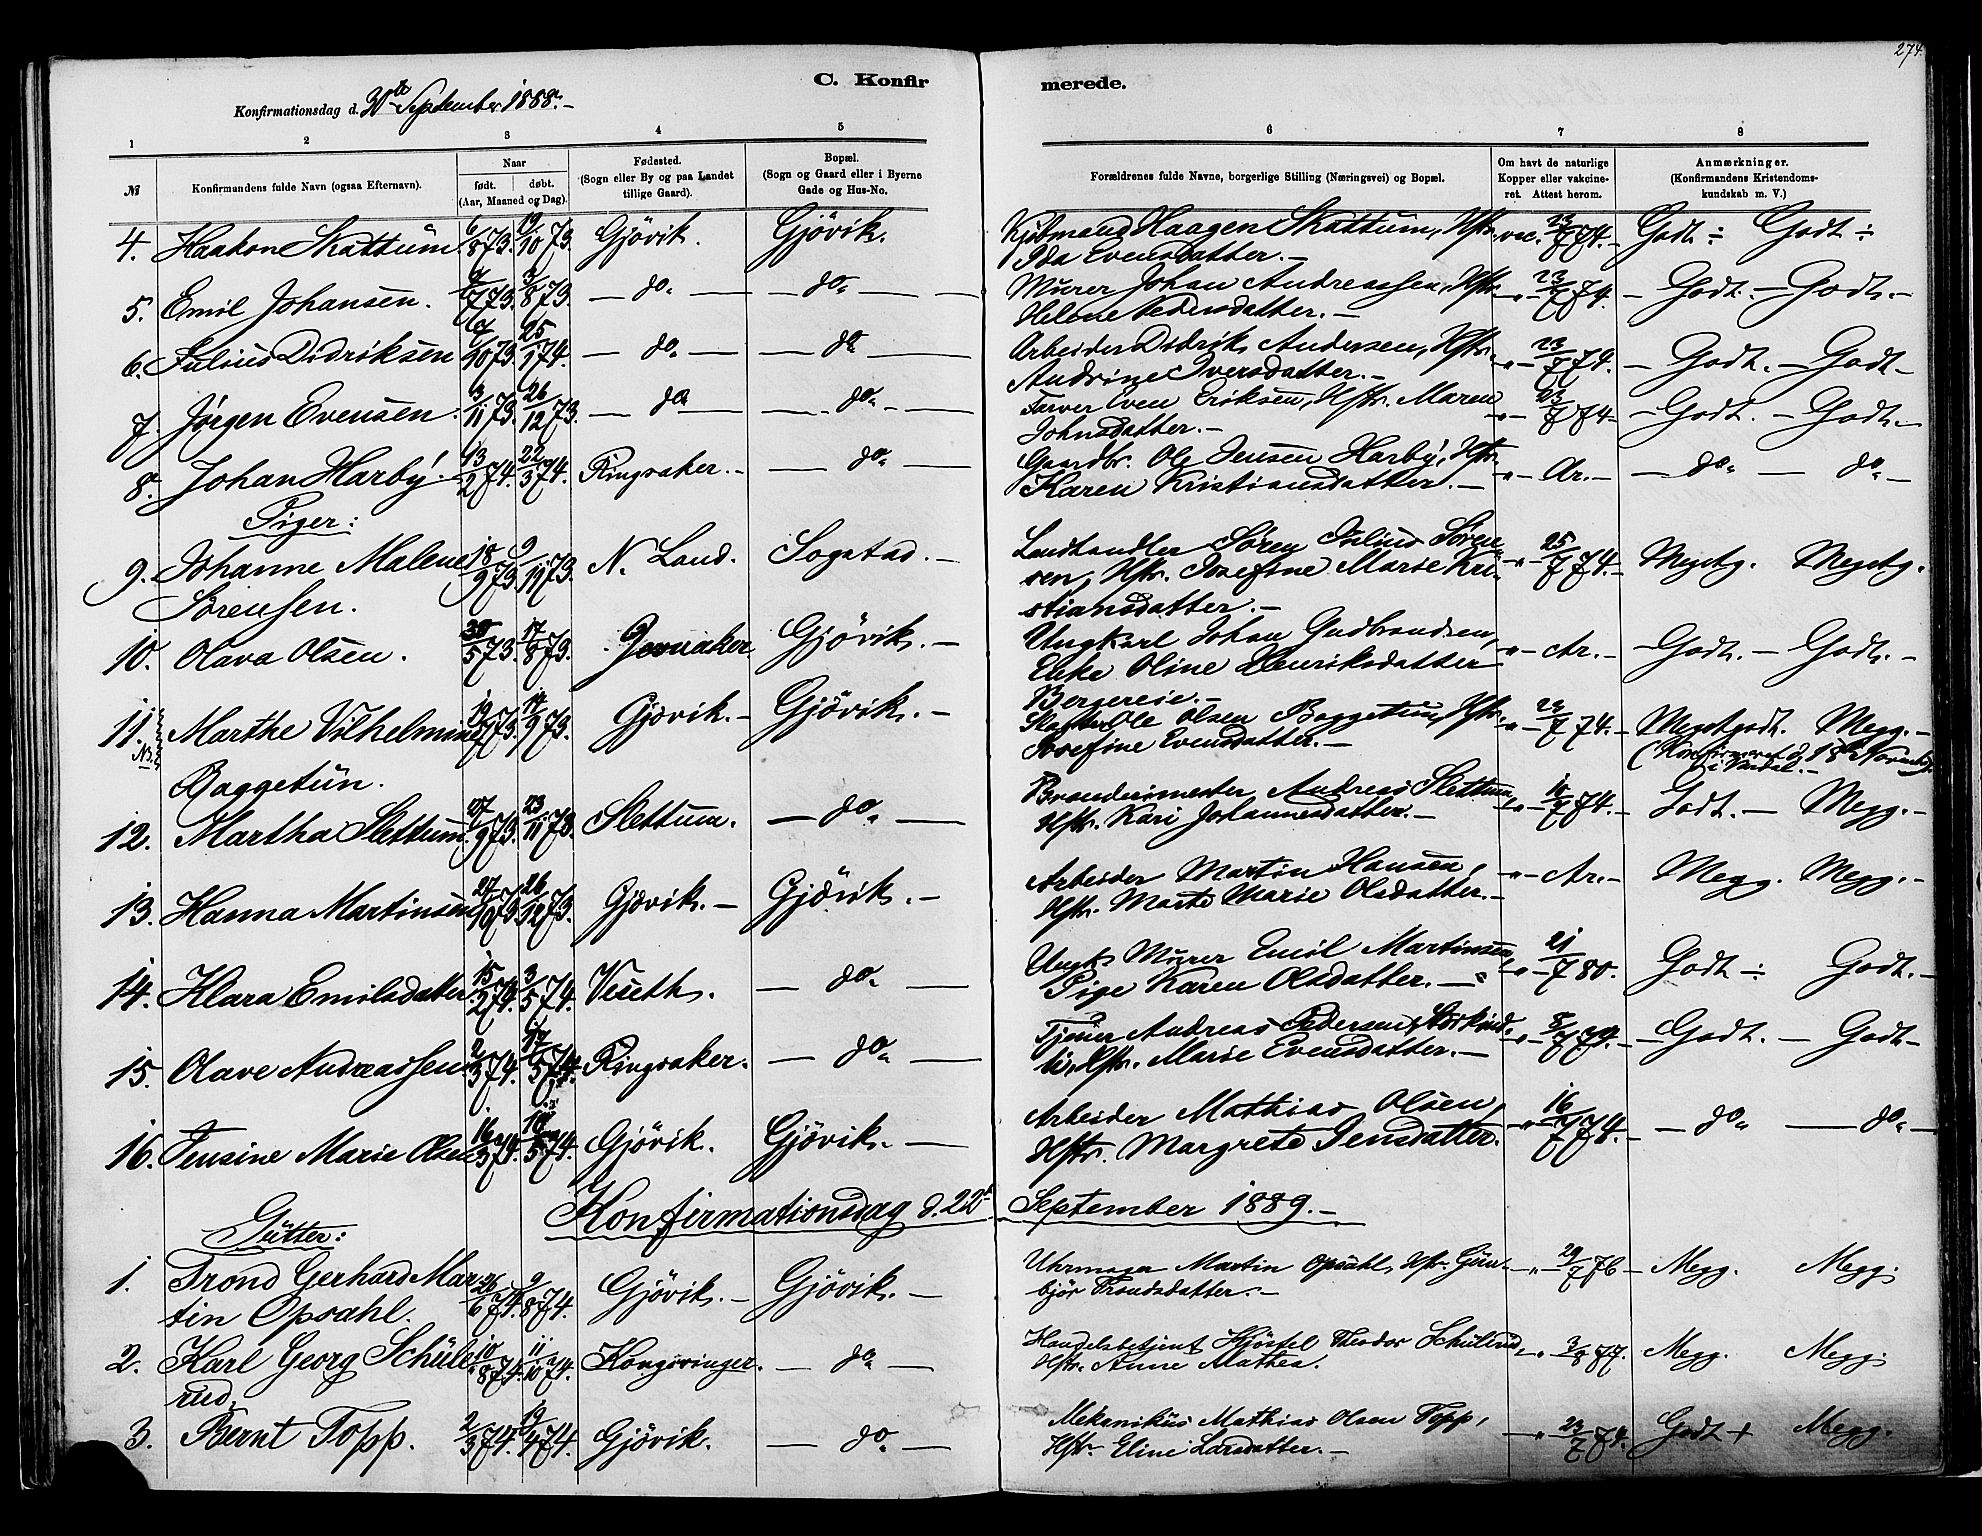 274.
C. Konfirmerede.
Konfirmationsdag d. 30te September 1888.-
1 2 3 4 5 6 7 8
№ Konfirmandens fulde Navn (ogsaa Efternavn). Naar født. døbt. (Aar, Maaned og Dag). Fødested. (Sogn eller By og paa Landet tillige Gaard). Bopæl. (Sogn og Gaard eller i Byerne Gade og Hus-No. Forældrenes fulde Navne, borgerlige Stilling (Næringsvei) og Bopæl. Om havt de naturlige Kopper eller vaccineret. Attest herom. Anmærkninger. (Konfirmandens Kristendomskundskab m. V.)
4. Haakon Skattum 6/8 73. 19/10 73. Gjövik. Gjövik. Kjöbmand Haagen Skattum, Hstr. vac. 23/7 74.- Godt ÷ Godt ÷
Ida Evensdatter.-
5. Emil Johansen. 7 73. 3/8 73. — do. — — do. — Murer Johan Andreassen, Hstr. -"- 23/7 74. - Godt. - Godt. -
Helene Pedersdatter. -
6. Julius Didriksen 10 73. 25/1 74. — do. — — do — Arbeider Didrik Andersen, Hstr. -"- 23/7 74. - Godt. - Godt. -
Andrine Iversdatter. -
7. Jørgen Evensen. 3/11 73. 26/12 73. — do — —. do. - — Farver Even Eriksen, Hstr. Maren -"- 23/7 74. - Godt. - Godt. -
Johnsdatter. -
8. Johan Harby. 13/2 74. 22/3 74. Ringsaker. - — do. — Gaardbr. Ole Jensen Harby, Hstr. -"- Ar. - — do. — do. -
Karen Kristiansdatter. -
Piger:
9. Johanne Malene 18/9 73. 9/11 73. N. Land. Sogstad. - Landhandler Sören Julius Sören- -"- 25/7 74. - Megetg. Megetg.
Sörensen. sen, Hstr. Josefine Marie Kri-
stiansdatter. -
10. Olava Olsen. 30/5 73. 17/8 73. Jevnaker Gjövik. - Ungkarl Johan Gudbrandsen, -"- Ar. - Godt. - Godt. -
Enke Oline Henriksdatter
Bergereie. -
11. NB. Marthe Vilhelmine 19/7 73. 14/9 73. Gjövik. - Gjövik. - Ole Olsen Baggetun, Hstr. -"- 7 74. - Megetgodt. Megg. -
Baggetun. Josefine Evensdatter. - (Konfirmeret d. 18de Novembr. i Vardal. -
12. Martha Slettum. 27/9 73. 23/11 73. Slettum. — do. — Andreas Slettum, -"- 10/7 74. - Godt. - Megg. -
Hstr. Kari Johannesdatter. -
13. Hanna Martinsen 27/10 73. 26/12 73. Gjövik. - Gjövik. - Arbeider Martin Hansen, -"- Ar. - Megg. Megg. -
Hstr. Marte Marie Olsdatter. -
14. Klara Emilsdatter. 15/2 74. 3/5 74. — do. — Ungk. Murer Emil Martinsen, -"- 21/7 80. Godt ÷ Godt. -
Pige Karen Olsdatter. -
15. Olave Andreassen 2/3 74. 17/5 74. Ringsaker. — do. — Tjener Andreas Pedersen -"- 8/7 79. - Godt. - Godt -
Hstr. Marie Evensdatter. -
16. Jensine Marie Olsen 16/3 74. 10/5 74. Gjövik. Gjövik. — Arbeider Mathias Olsen, -"- 16/7 78. - — do. — do. -
Hstr. Margrete Jensdatter.
Konfirmationsdag d. 22de September 1889. -
Gutter:
1. Trond Gerhard Mar 26/6 74. 9/8 74. Gjövik. - Gjövik. - Uhrmager Martin Opsahl, Hstr. Gun- -"- 29/7 76 - Megg. Megg.
tin Opsahl. björ Trondsdatter. -
2. Karl Georg Schüle 10/8 74. 11/10 74. Kongsvinger. — do. — Handelsbetjent Kjöstel Theodor Schüllerud, -"- 3/8 77. Megg. Megg.
rud. Hstr. Anne Mathea.
3. Bernt Topp. 2/3 74. 19/4 74. Gjövik. — do. — Mekanikus Mathias Olsen Topp, -"- 23/7 74. - Godt + Megg.
Hstr. Eline Larsdatter. -